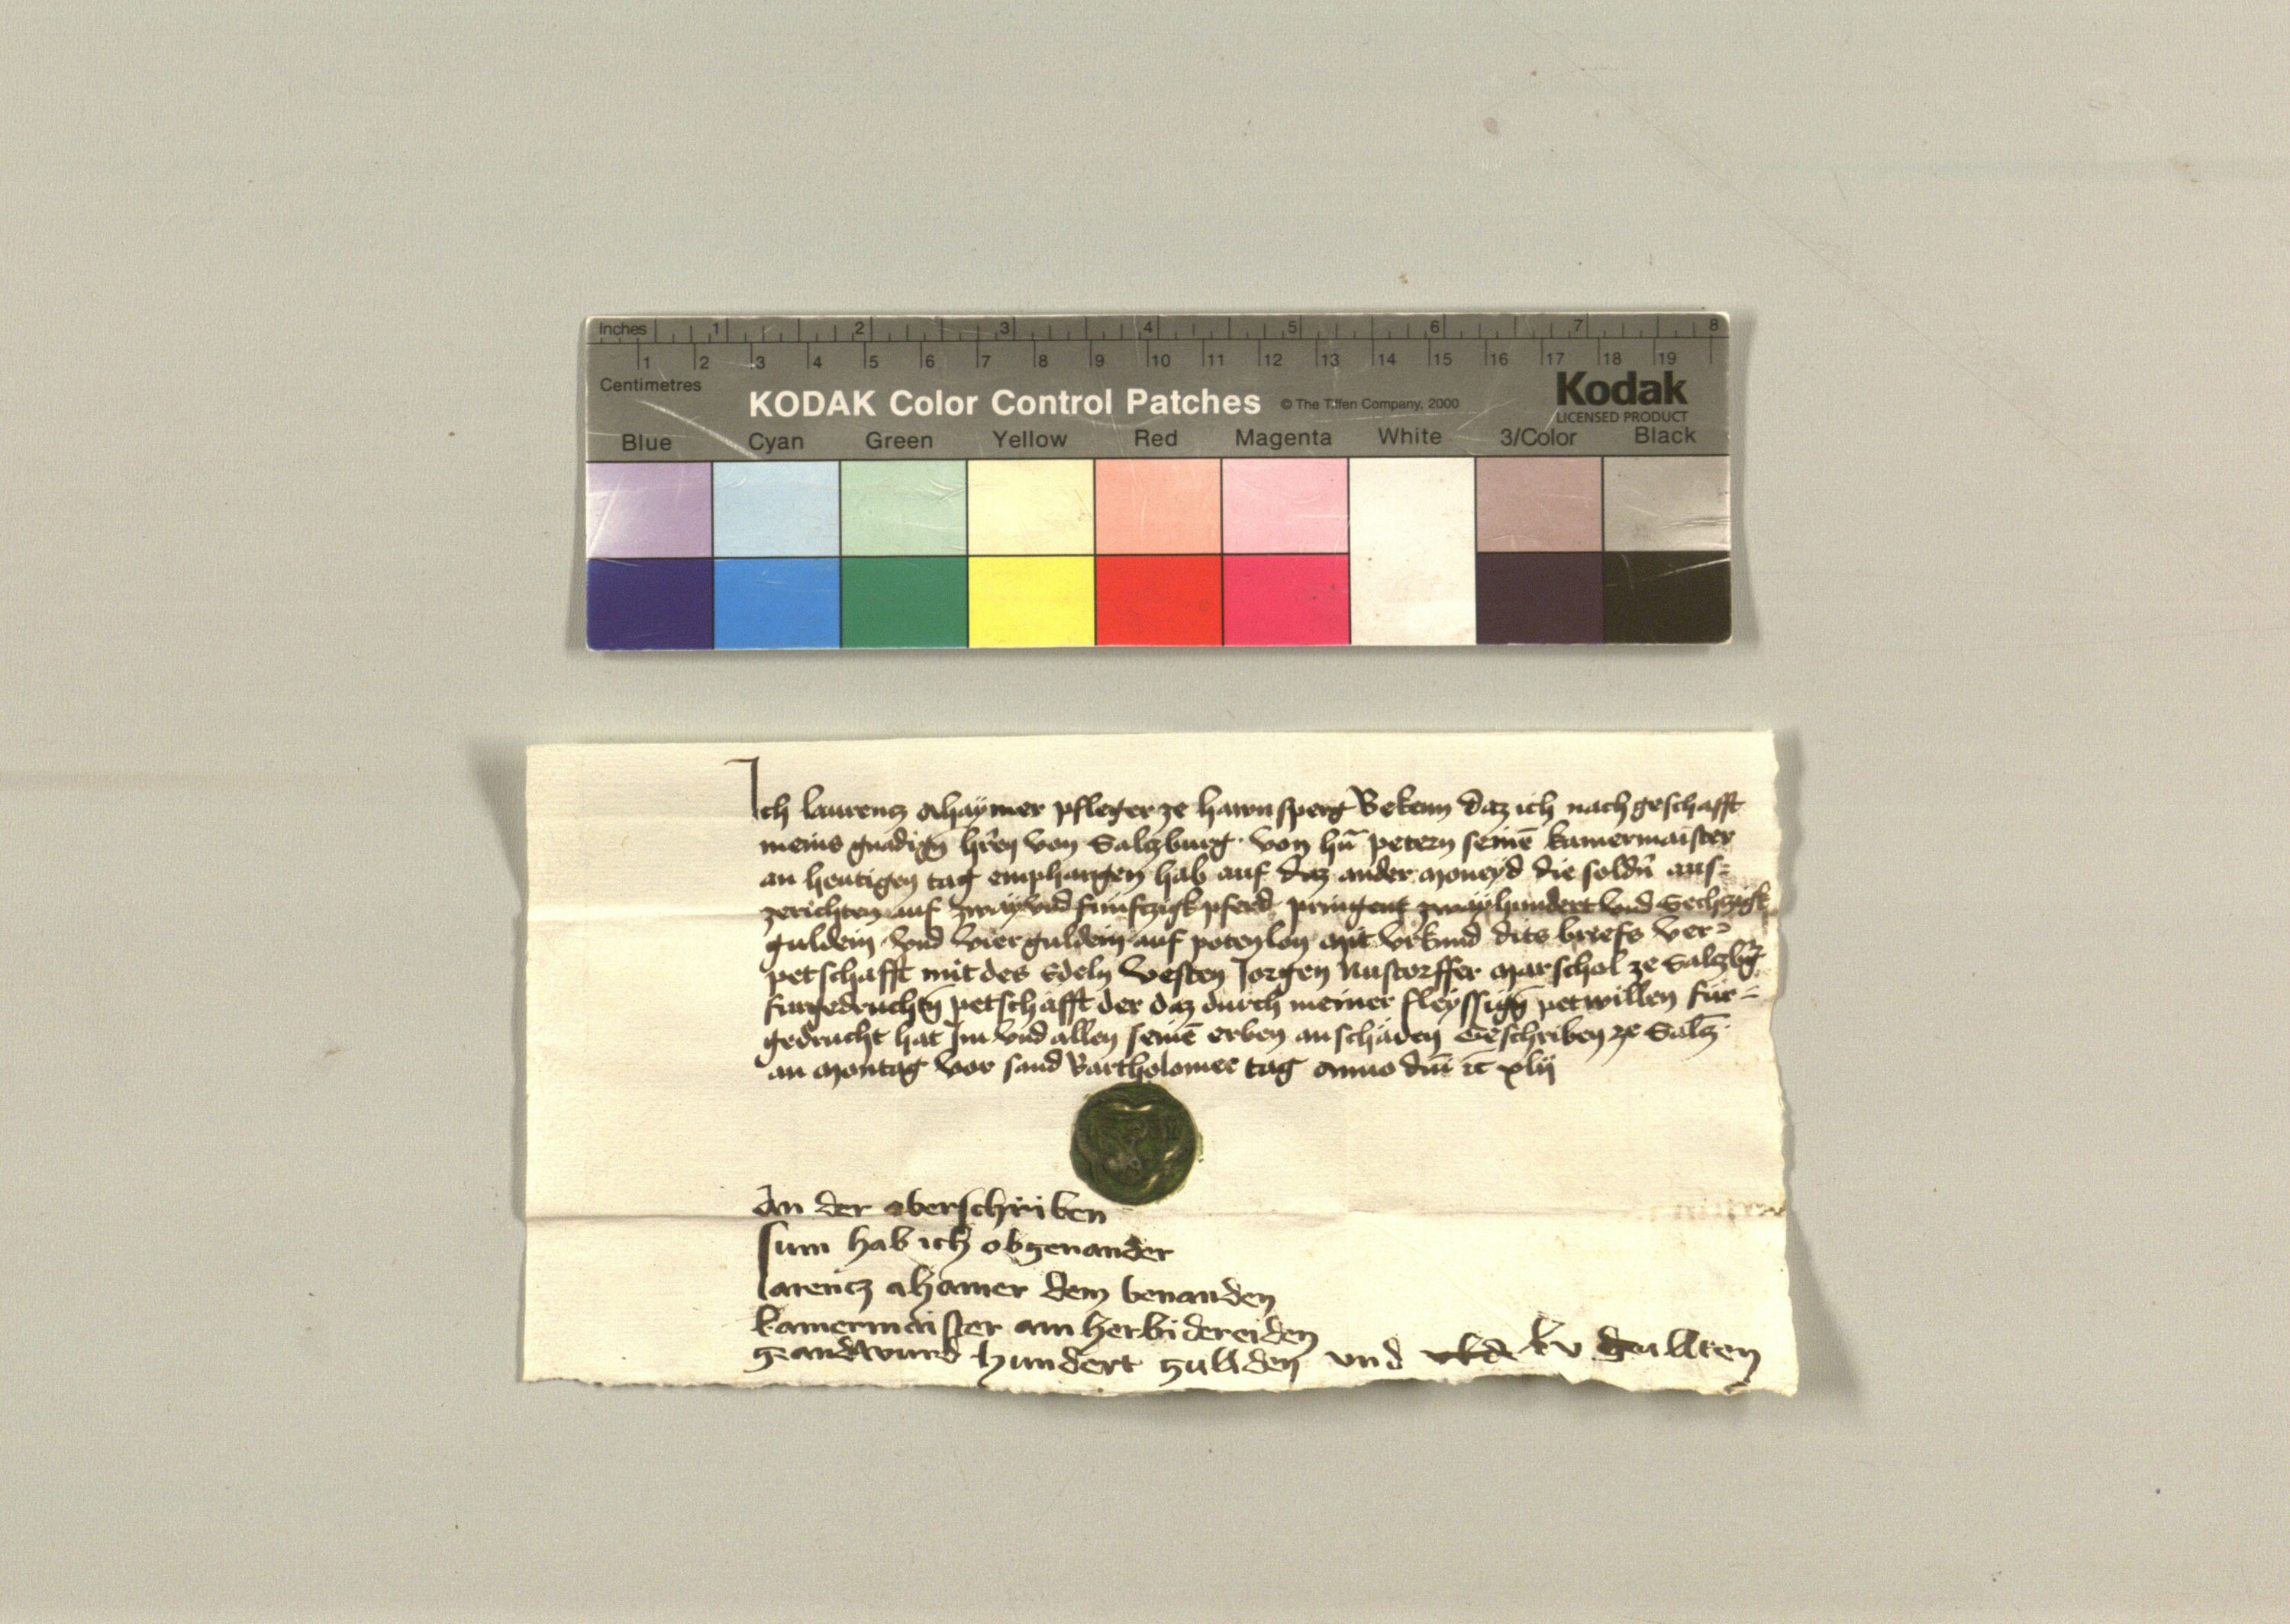 Inches 1 2 3 4 5 6 7 8
1 2 3 4 5 6 7 8 9 10 11 12 13 14 15 16 17 18 19
Centimetres
KODAK Color Control Patches © The Tiffen Company, 2000 Kodak
LICENSED PRODUCT
Blue Cyan Green Yellow Red Magenta White 3/Color Black
Ich laurencz ahaymer pfleger ze hawnsperg Bekenn daz ich nach geschafft
meins gnadign hern von Salczburg von hn petern seine kamermaister
an heutigen tag emphangen hab auf daz ander moneyd die soldn aus=
zerichten auf zway vnd fünfczigk pferd pringent zwayhundert vnd Sechczigk
guldein vnd vier guldein auf potenlon mit vrkund dits briefs ver=
petschafft mit des Edeln vesten Jorgen Nustorffer marschal ze salczbg
furgedruchtn petschafft der daz durch meiner fleyssign pet willen für=
gedrucht hat Im vnd allen seine erben an schaden Geschriben ze Salcz
an montag vor sand Bartholomes tag anno dni xlij
An der oberschriben
sum hab ich obgenander
larencz ahamer dem benanden
kamermaister am
geandwurd hundert gullden vnd lv gullten